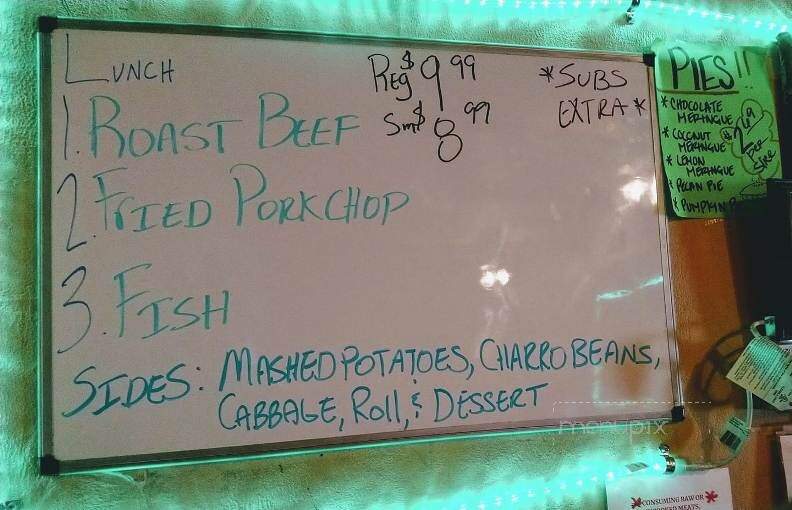 LUNCH
Reg $9 99
Sm $8 99
*SUBS
EXTRA*
1. ROAST BEEF
2. FRIED PORKCHOP
3. FISH
SIDES: MASHED POTATOES, CHARRO BEANS,
CABBAGE, Roll, & DESSERT
PIES!!
* CHOCOLATE
MERINGUE
* COCONUT
MERINGUE
* LEMON
MERINGUE
* PECAN PIE
* PUMPKIN
$2 69
PER
Slice
menupix
*CONSUMING RAW OR*
MEATS,